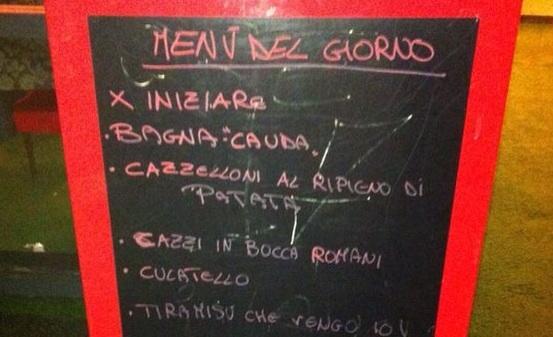 MENÙ DEL GIORNO
X INIZIARE
. BAGNA "CAUDA"
. CAZZELLONI AL RIPIENO DI
PATATA
. CAZZI IN BOCCA ROMANI
. CULATELLO
. TIRAMISU CHE VENGO IO